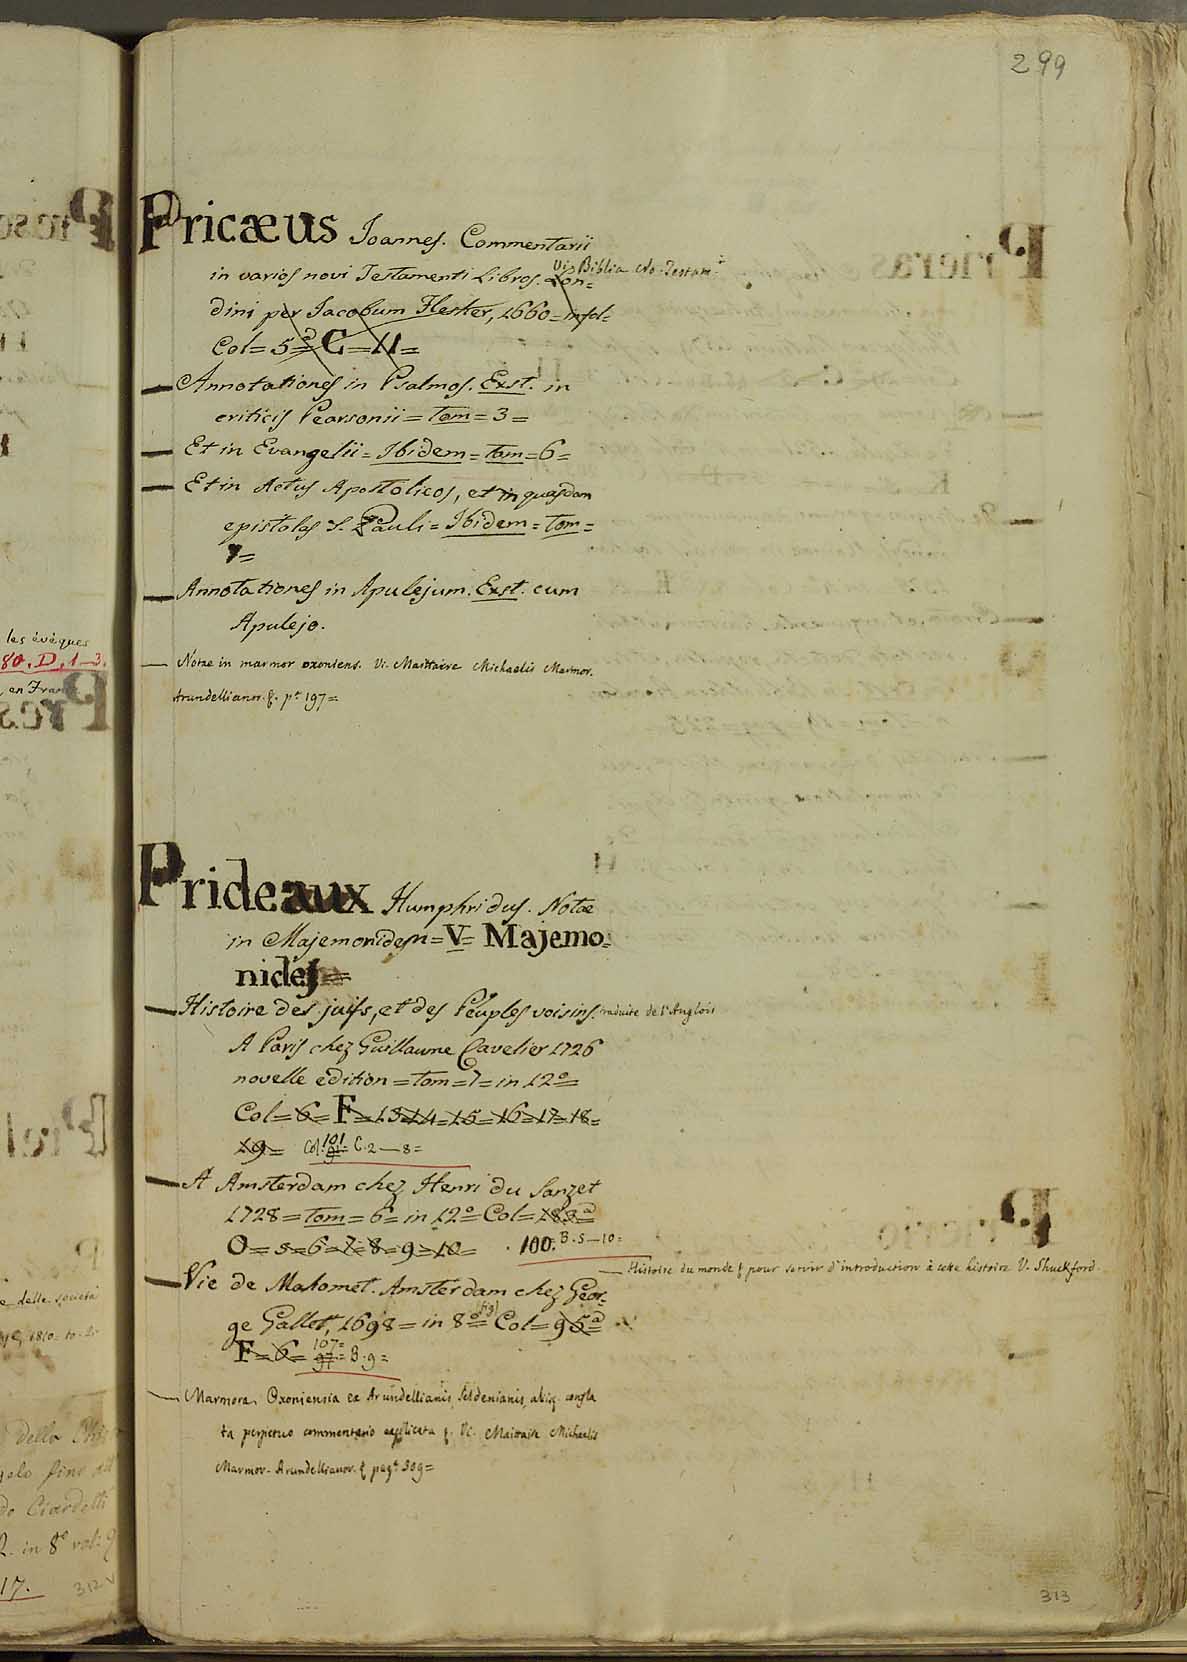 299
Pricæus Joannes. Commentarii
in varios novi Testamenti Libros. Lon=
Vi. Biblia No. Testam.
dini per Jacobum Flesher, 1660=in fol=
Col= 5ª= C=11=
— Annotationes in Psalmos. Exst. in
criticis Pearsonii=tom=3=
— Et in Evangelii=Ibidem=tom=6=
— Et in Actus Apostolicos, et in quasdam
epistolas S. Pauli=Ibidem=tom=
7=
— Annotationes in Apulejum. Exst. cum
Apulejo.
— Notae in marmor oxoniens. Vi. Maittaire Michaelis Marmor.
Arundellianor. &. pª 197=
Prideaux Humphridus. Notæ
in Majemonidem=V= Majemo=
nides=
— Histoire des juifs, et des Peuples voisins. traduite de l'Anglois
A Paris chez Guillaume Cavelier 1726
novelle edition=tom=7=in 12º=
Col=6=F=13=14=15=16=17=18=
19= Col. 101 91= C. 2—8=
— A Amsterdam chez Henri du Sauzet
1728=tom=6=in 12º Col=183ª=
O=5=6=7=8=9=10= 100. B. 5—10=
— Histoire du monde & pour servir d'introduction à cete histoire V. Shuckford.
— Vie de Mahomet. Amsterdam chez Geor=
ge Gallet, 1698=in 8º= (fig) Col=95ª=
F=6= 107= 97= B. 9=
— Marmora Oxoniensia ex Arundellianis, Seldenianis, aliisq. confla
ta perpetuo commentario explicata &. Vi. Maitaire Michaelis
Marmor. Arundellianor. & pagª 309=
313
les évêques
80. D. 1—3.
en Fran
Pres
e delle societa
1810. to. 2.
della
gelo fino al
do Ciardetti
2. in 8º vol. 9
17.
312 v